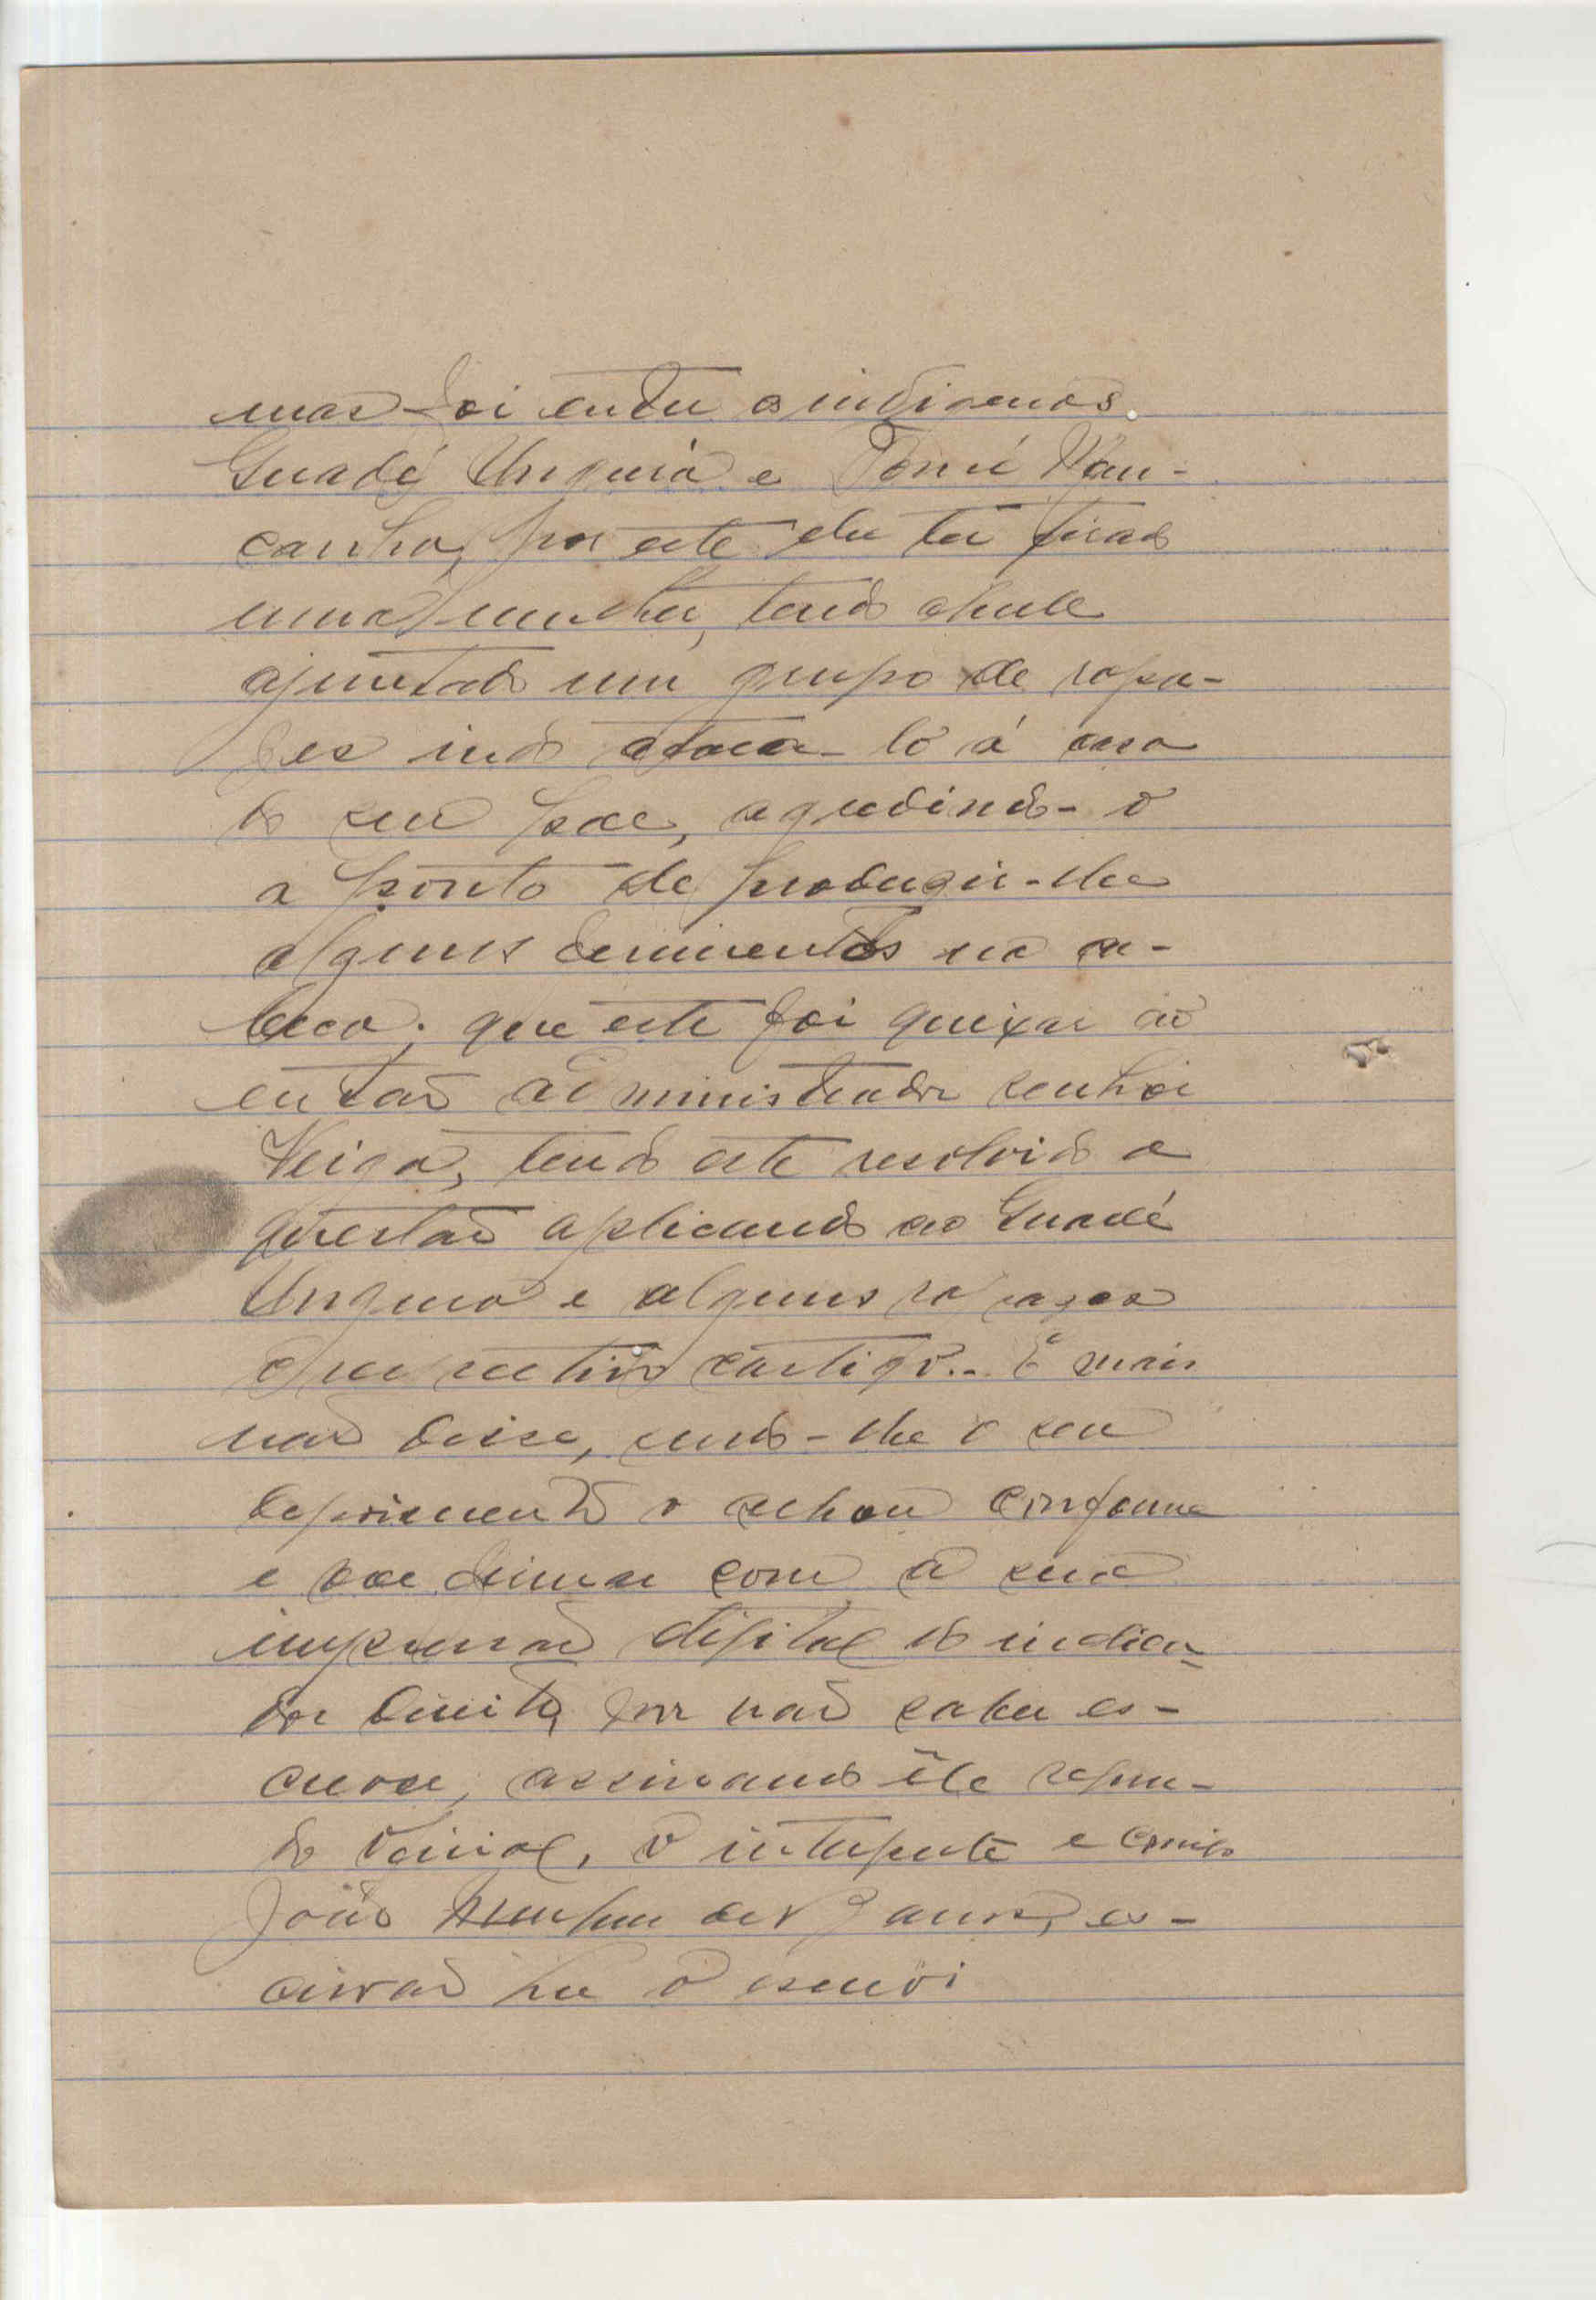 mas foi entre os indigenas.
Guadé Unguiá e Tomé Man-
canha, por este lhe ter tirado
uma mulher, tendo aquele
ajuntado um grupo de rapa-
zes indo ataca-lo á casa
do seu pae, agredindo-o
a ponto de produzir-lhe
alguns ferimentos na ca-
beça; que este foi queixar ao
então administrador senhor
Veiga, tendo este resolvido a
questão aplicando ao Guadé
Unguia e alguns rapazes
castigo.. E mais
não disse, sendo-lhe o seu
depoimento o achou conforme
e vae firmar com a sua
impressão digital do indica-
dor direito, por não saber es-
crever, assinando ele segun-
do oficial, o interprete e comigo
João de Barros, es-
crivão que o escrevi